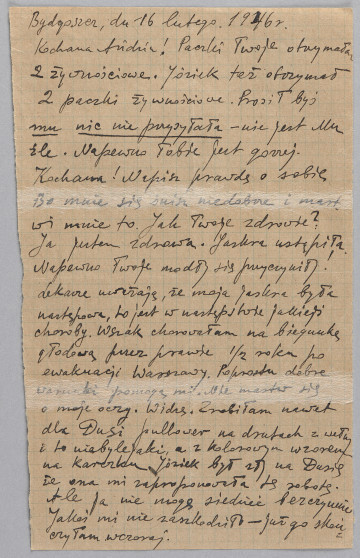 Bydgoszcz, dn 16 lutego. 1946r.
Kochana! Paczki Twoje otrzymałam
2 żywnościowe. Józiek też otrzymał
2 paczki żywnościowe. Prosił byś
mu nic nie przysyłała – nie jest Mu
źle. Napewno Tobie jest gorzej.
Kochana! Napisz prawdę o sobie
mnie się śnisz niedobrze i mart
wi mnie to. Jak Twoje zdrowie?
Ja jestem zdrowa. Jaskra ustąpiła.
Napewno Twoje modły się przyczyniły!
Lekarze uważają, że moja jaskra była
następowa, to jest w następstwie jakiejś
choroby. Wszak chorowałam na biegunkę
głodową przez prawie 1/2 roku po
ewakuacji Warszawy. Poprostu dobre
warunki pomogły mi. Nie martw się
o moje oczy. Widzę. Zrobiłam nawet
dla Dusi pullower na drutach z wełny
i to niebylejaki, a z kolorowym wzorem
na Józiek był zły na Dusię
że ona mi zaproponowała tę robotę.
Ale ja nie mogę siedzieć bezczynnie
Jakoś mi nie zaszkodziło – już go skoń
czyłam wczoraj.